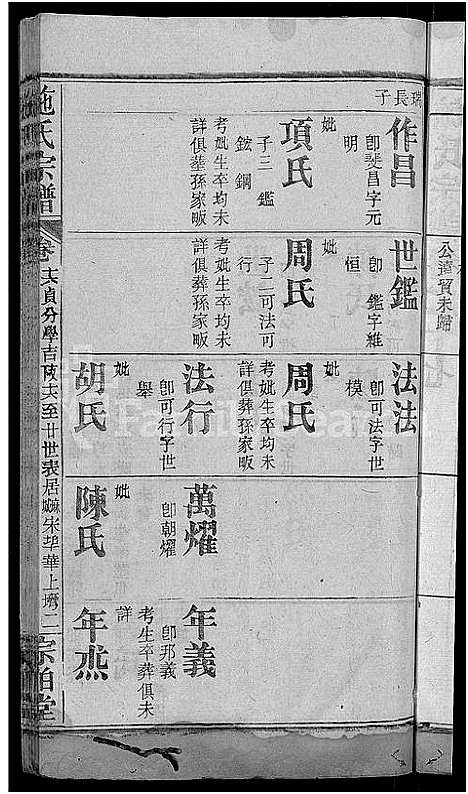 公達賢未歸
瑞長子
作昌
卽斐昌字元
明
妣
項氏
子三 鑑
鋐 鋼
考妣生卒均未
詳俱葬孫家畈
世鑑
卽 鑑字維
恒
妣
周氏
子二可法可
行
考妣生卒均未
詳俱葬孫家畈
法法
卽可法字世
模
妣
周氏
考妣生卒均未
詳俱葬孫家畈
法行
卽可行字世
舉
妣
胡氏
萬燿
卽朝燿
妣
陳氏
年義
卽邦義
考生卒葬俱未
詳
年烝
施氏宗譜
卷
貞分學吉
至廿世表居
宋埠華上塆
二
宗伯堂
FamilySearch